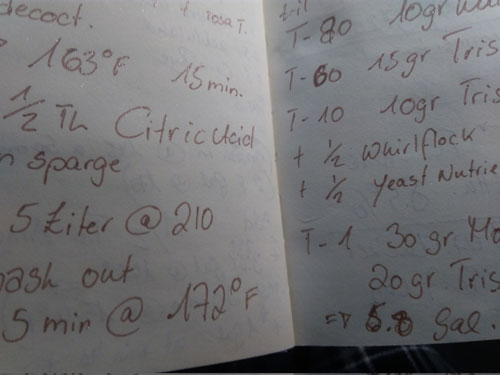 decoct.
163°F 15 min.
1/2 Th Citric Acid
n sparge
5 Liter @ 210
mash out
5 min @ 172°F
rosa T.
T-80 10gr
T-60 15gr Tris
T-10 10gr Tris
+ 1/2 Whirlflock
+ 1/2 Yeast Nutrie
T-1 30 gr Mo
20gr Tris
=> 5.8 Gal.